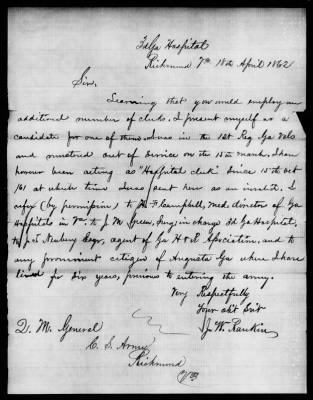 3d Ga Hospital
Richmond Va 18th April 1862
Sir,
Learning that you would employ an
additional number of clerks, I present myself as a
candidate for one of them. I was in the 1st Reg Ga Vols
and mustered out of service on the 15th march. I have
however been acting as "Hospital clerk" since 15th oct
/61 at which time I was sent here as an invalid. I
refer (by permission) to H. F. Campbell, Med. director of Ga
Hospitals in Va. to J. M. Green, Surg; in charge 3d Ga Hospital,
to Esqr, agent of Ga H & R Association, and to
any prominent citizen of Augusta Ga where I have
lived for six years, previous to entering the army.
Very Respectfully
Your obt Svt
J. W. Rankin
Q. M. General
C. S. Army
Richmond
Va